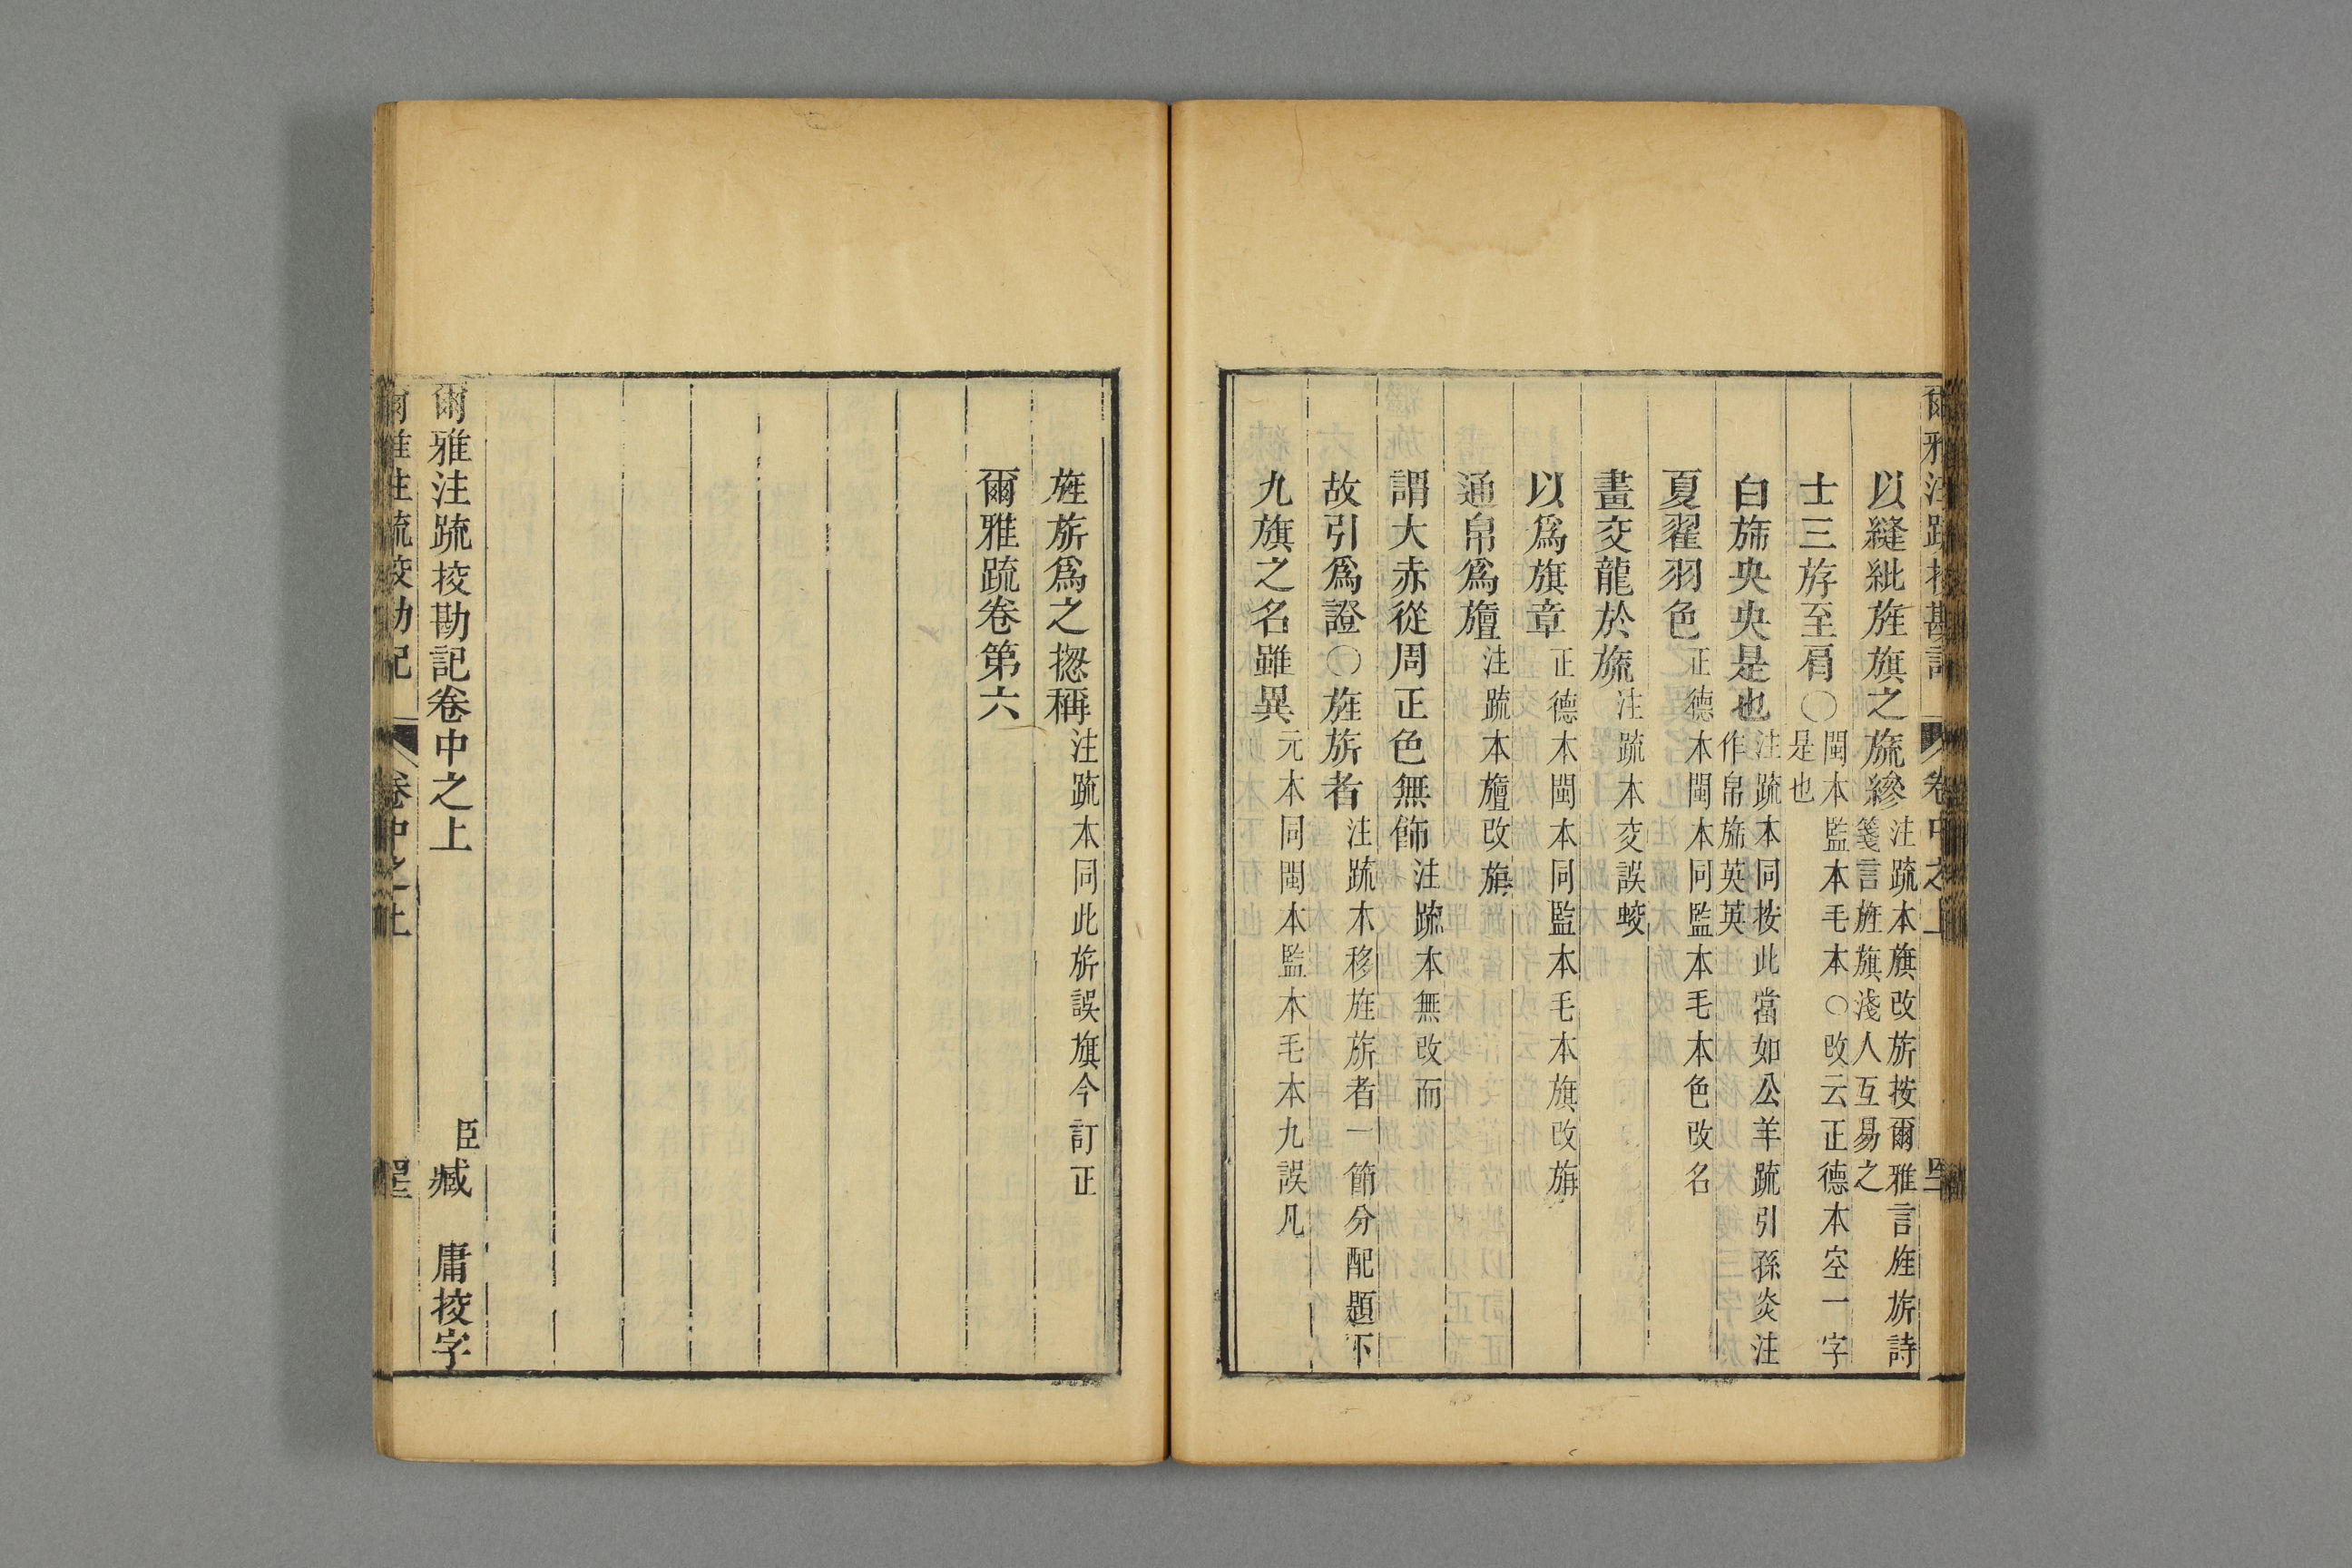 以縫紕旌旗之旒縿注疏本旗改旂按爾雅言旌旂詩
箋言旌旗淺人互易之
士三斿至肩〇閩本監本毛本〇改云正德本空一字
是也
白旆央央是也注疏本同按此當如公羊疏引孫炎注
作帛旆英英
夏翟羽色正德本閩本同監本毛本色改名
畫交龍於旒注疏本交誤蛟
以爲旗章正德本閩本同監本毛本旗改旃
通帛爲旜注疏本旜改旃
謂大赤從周正色無飾注疏本無改而
故引爲證〇旌旂者注疏本移旌旂者一節分配題下
九旗之名雖異元本同閩本監本毛本九誤凡
旌旂爲之揔稱注疏本同此旂誤旗今訂正
爾雅疏卷第六
爾雅注疏挍勘記卷中之上
臣臧庸挍字
爾雅注疏挍勘記 卷中之上